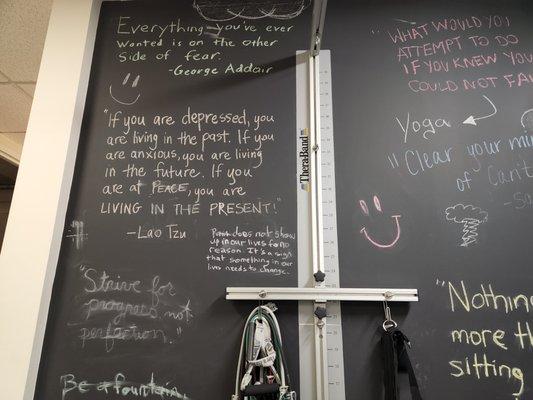 Everything you've ever
wanted is on the other
side of fear.
-George Addair
"If you are depressed, you
are living in the past. If you
are anxious, you are living
in the future. If you
are at PEACE, you are
LIVING IN THE PRESENT!"
-Lao Tzu
does not show
up in our lives for no
reason. It's a sign
that something in our
lives needs to change.
"Strive for
progress, not
perfection."
Be a fountain,
TheraBand
"WHAT WOULD YOU
ATTEMPT TO DO
IF YOU KNEW YOU
COULD NOT FA
Yoga
"Clear your min
of "can't
"Nothin
more th
sitting